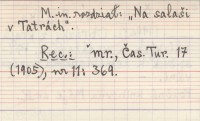 M. in. rozdział: "Na salaši
v Tatrách".
Rec.: mr., Čas. Tur. 17
(1905), nr 11: 369.